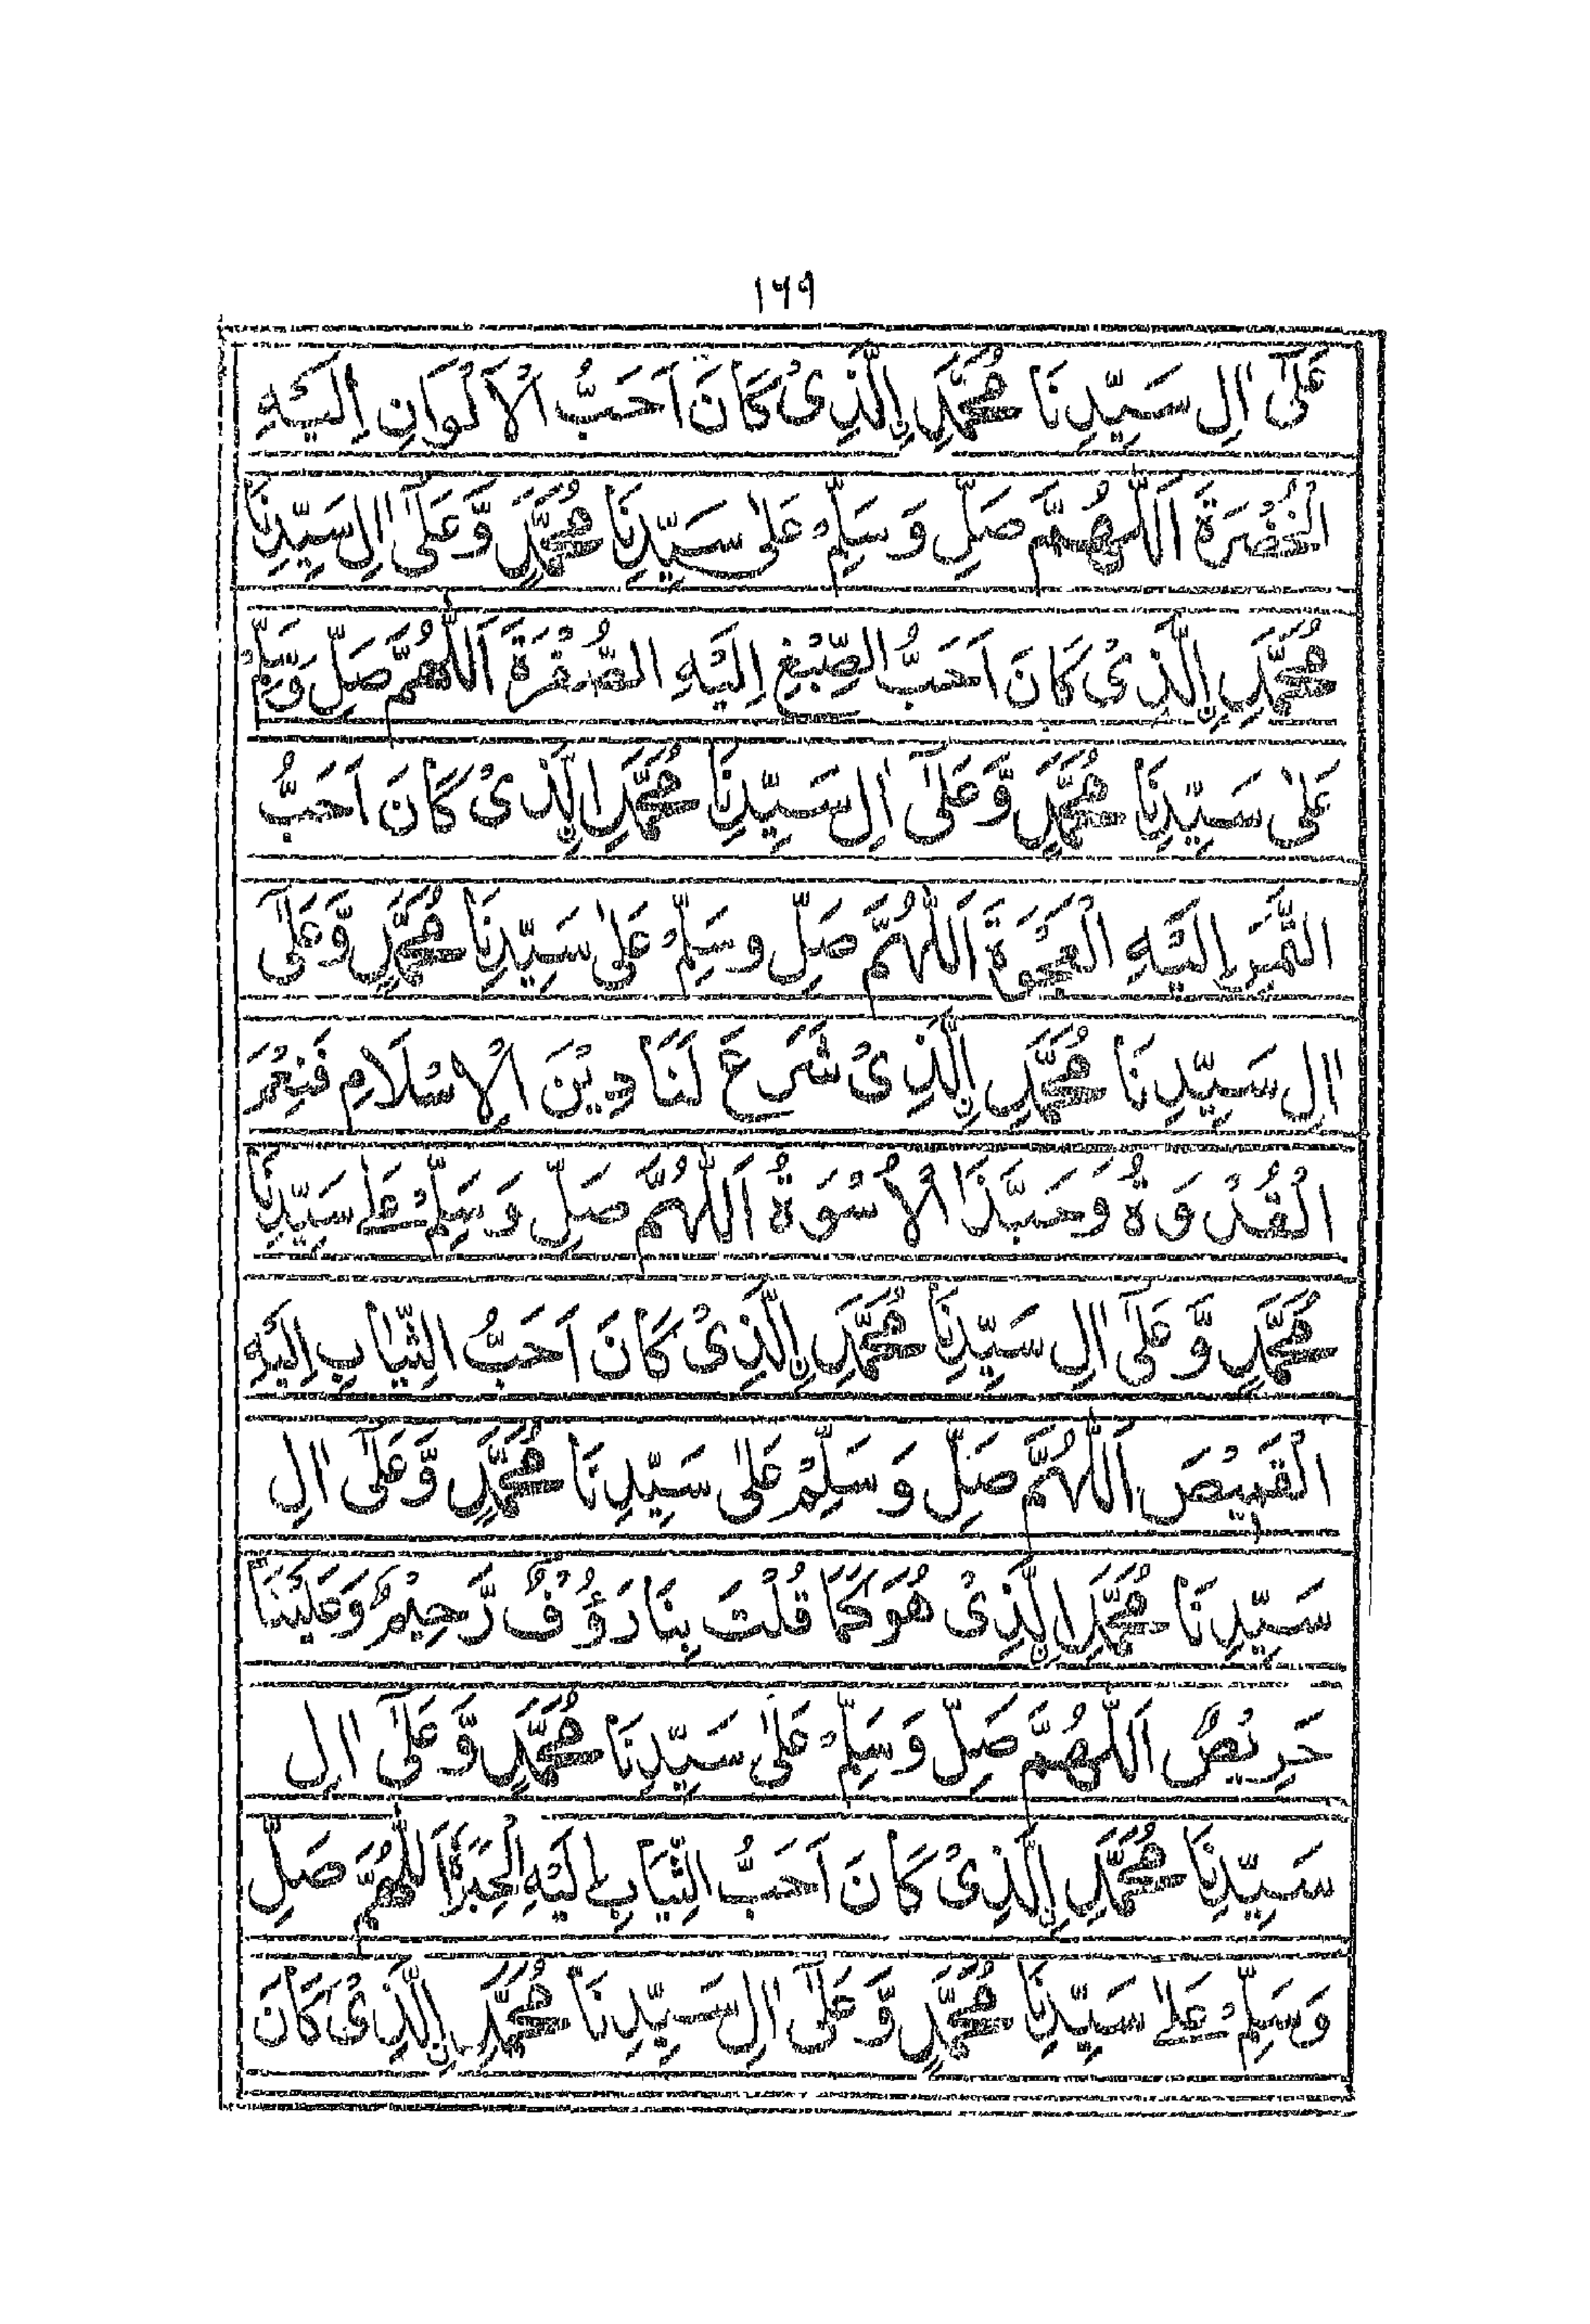 ۱۶۹
عَلٰٓى اٰلِ سَيِّدِنَا مُحَمَّدِ ِالَّذِىْ كَانَ اَحَبُّ الْاَلْوَانِ اِلَيْهِ
الْخُضْرَةَ اَللّٰهُمَّ صَلِّ وَسَلِّمْ عَلٰى سَيِّدِنَا مُحَمَّدٍ وَّعَلٰٓى اٰلِ سَيِّدِنَا
مُحَمَّدِ ِالَّذِىْ كَانَ اَحَبُّ الصِّبْغِ اِلَيْهِ الصُّفْرَةَ اَللّٰهُمَّ صَلِّ وَسَلِّمْ
عَلٰى سَيِّدِنَا مُحَمَّدٍ وَّعَلٰٓى اٰلِ سَيِّدِنَا مُحَمَّدِ ِالَّذِىْ كَانَ اَحَبُّ
التَّمَرِ اِلَيْهِ الْعَجْوَةَ اَللّٰهُمَّ صَلِّ وسَلِّمْ عَلٰى سَيِّدِنَا مُحَمَّدٍ وَّعَلٰٓى
اٰلِ سَيِّدِنَا مُحَمَّدِ ِالَّذِىْ شَرَعَ لَنَا دِيْنَ الْاِسْلَامِ فَنِعْمَ
الْقُدْوَةُ وَحَبَّذَا الْاُسْوَةُ اَللّٰهُمَّ صَلِّ وَسَلِّمْ عَلٰے سَيِّدِنَا
مُحَمَّدٍ وَّعَلٰٓى اٰلِ سَيِّدِنَا مُحَمَّدِ ِالَّذِىْ كَانَ اَحَبُّ الثِّيَابِ اِلَيْهِ
الْقَمِيْصَ اَللّٰهُمَّ صَلِّ وَسَلِّمْ عَلٰى سَيِّدِنَا مُحَمَّدٍ وَّعَلٰٓى اٰلِ
سَيِّدِنَا مُحَمَّدِ ِالَّذِىْ هُوَ كَمَا قُلْتَ بِنَا رَؤُفٌ رَّحِيْمٌ وَعَلَيْنَا
حَرِيْصٌ اَللّٰهُمَّ صَلِّ وَسَلِّمْ عَلٰى سَيِّدِنَا مُحَمَّدٍ وَّعَلٰٓى اٰلِ
سَيِّدِنَا مُحَمَّدِ ِالَّذِىْ كَانَ اَحَبُّ الثِّيَابِ اِلَيْهِ الْحِبَرَةَ اَللّٰهُمَّ صَلِّ
وَسَلِّمْ عَلٰے سَيِّدِنَا مُحَمَّدٍ وَّعَلٰٓى اٰلِ سَيِّدِنَا مُحَمَّدِ ِالَّذِىْ كَانَ